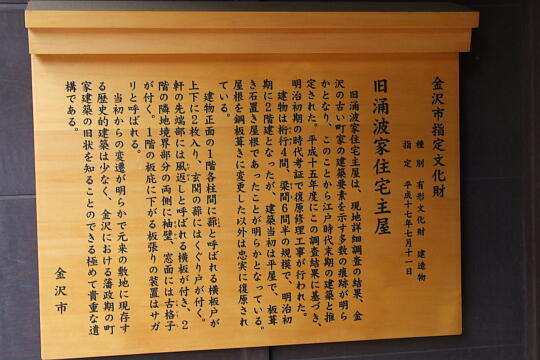 金沢市指定文化財
種別　有形文化財　建造物
指定　平成十七年七月十一日
旧涌波家住宅主屋
旧涌波家住宅主屋は、現地詳細調査の結果、金
沢の古い町家の建築要素を示す多数の痕跡が明ら
かとなり、このことから江戸時代末期の建築と推
定された。平成十五年度にこの調査結果に基づき、
明治初期の時代考証で復原修理工事が行われた。
建物は桁行4間、梁間6間半の規模で、明治初
期に2階建となったが、建築当初は平屋で、板葺
き石置き屋根であったことが明らかとなっている。
屋根を鋼板葺きに変更した以外は忠実に復原され
ている。
建物正面の1階各柱間に蔀と呼ばれる横板戸が
上下に2枚入り、玄関の蔀にはくぐり戸が付く。
軒の先端部には風返しと呼ばれる横板が付き、2
階の隣地境界部分の両側に袖壁、窓面には古格子
が付く。1階の板庇に下がる板張りの装置はサガ
リと呼ばれる。
当初からの変遷が明らかで元来の敷地に現存す
る歴史的建築は少なく、金沢における藩政期の町
家建築の旧状を知ることのできる極めて貴重な遺
構である。
金沢市